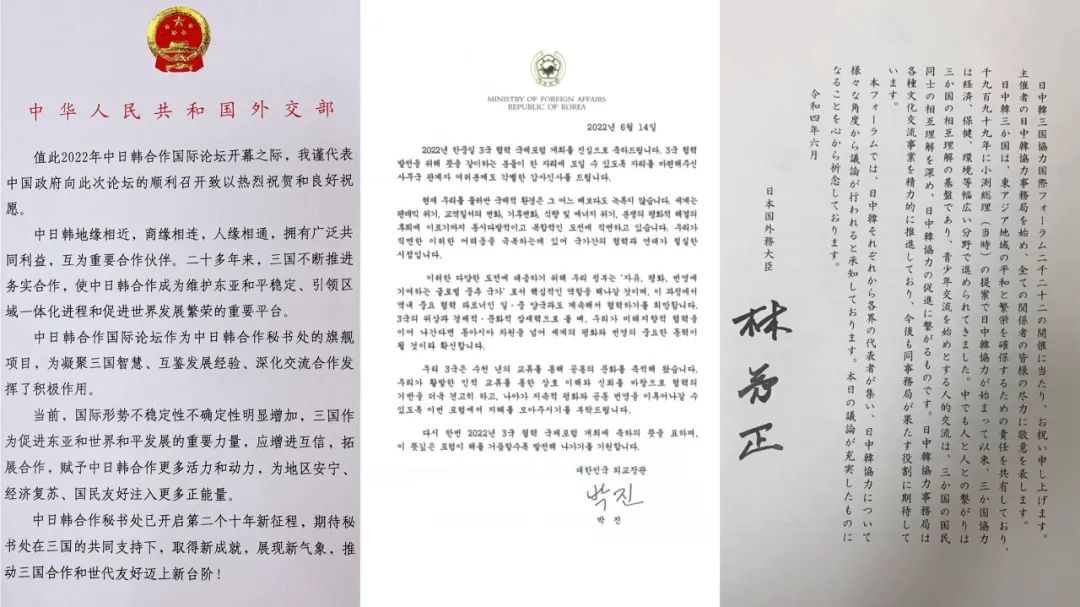 中华人民共和国外交部
值此2022年中日韩合作国际论坛开幕之际，我谨代表
中国政府向此次论坛的顺利召开致以热烈祝贺和良好祝
愿。
中日韩地缘相近，商缘相连，人缘相通，拥有广泛共
同利益，互为重要合作伙伴。二十多年来，三国不断推进
务实合作，使中日韩合作成为维护东亚和平稳定、引领区
域一体化进程和促进世界发展繁荣的重要平台。
中日韩合作国际论坛作为中日韩合作秘书处的旗舰
项目，为凝聚三国智慧、互鉴发展经验、深化交流合作发
挥了积极作用。
当前，国际形势不稳定性不确定性明显增加，三国作
为促进东亚和世界和平发展的重要力量，应增进互信，拓
展合作，赋予中日韩合作更多活力和动力，为地区安宁、
经济复苏、国民友好注入更多正能量。
中日韩合作秘书处已开启第二个十年新征程，期待秘
书处在三国的共同支持下，取得新成就，展现新气象，推
动三国合作和世代友好迈上新台阶！
MINISTRY OF FOREIGN AFFAIRS
REPUBLIC OF KOREA
2022년 6월 14일
2022년 한중일 3국 협력 국제포럼 개최를 진심으로 축하드립니다. 3국 협력
발전을 위해 뜻을 같이하는 분들이 한 자리에 모일 수 있도록 자리를 마련해주신
사무국 관계자 여러분께도 각별한 감사인사를 드립니다.
현재 우리를 둘러싼 국제적 환경은 그 어느 때보다도 녹록지 않습니다. 세계는
팬데믹 위기, 교역질서의 변화, 기후변화, 식량 및 에너지 위기, 분쟁의 평화적 해결의
후퇴에 이르기까지 동시다발적이고 복합적인 도전에 직면하고 있습니다. 우리가
직면한 이러한 어려움을 극복하는데 있어 국가간의 협력과 연대가 절실한
시점입니다.
이러한 다양한 도전에 대응하기 위해 우리 정부는 '자유, 평화, 번영에
기여하는 글로벌 중추 국가'로서 핵심적인 역할을 해나갈 것이며, 이 과정에서
역내 중요 협력 파트너인 일·중 양국과도 계속해서 협력하기를 희망합니다.
3국의 위상과 경제적·문화적 잠재력으로 볼 때, 우리가 미래지향적 협력을
이어 나간다면 동아시아 차원을 넘어 세계의 평화와 번영의 중요한 동력이
될 것이라 확신합니다.
우리 3국은 수천 년의 교류를 통해 공통의 문화를 축적해 왔습니다.
우리가 활발한 인적 교류를 통한 상호 이해와 신뢰를 바탕으로 협력의
기반을 더욱 견고히 하고, 나아가 지속적 평화와 공동 번영을 이루어나갈 수
있도록 이번 포럼에서 지혜를 모아주시기를 부탁드립니다.
다시 한번 2022년 3국 협력 국제포럼 개최에 축하의 뜻을 표하며,
이 뜻깊은 포럼이 해를 거듭할수록 발전해 나가기를 기원합니다.
대한민국 외교장관
박진
박 진
日中韓三国協力国際フォーラム二千二十二の開催に当たり、お祝い申し上げます。
主催者の日中韓協力事務局を始め、全ての関係者の皆様の尽力に敬意を表します。
日中韓三か国は、東アジア地域の平和と繁栄を確保するための責任を共有しており、
千九百九十九年に小渕総理（当時）の提案で日中韓協力が始まって以来、三か国協力
は経済、保健、環境等幅広い分野で進められてきました。中でも人と人との繋がりは
三か国の相互理解の基盤であり、青少年交流を始めとする人的交流は、三か国の国民
同士の相互理解を深め、日中韓協力の促進に繋がるものです。日中韓協力事務局は
各種文化交流事業を精力的に推進しており、今後も同事務局が果たす役割に期待して
います。
本フォーラムでは、日中韓それぞれから各界の代表者が集い、日中韓協力について
様々な角度から議論が行われると承知しております。本日の議論が充実したものに
なることを心から祈念しております。
令和四年六月
日本国外務大臣
林芳正